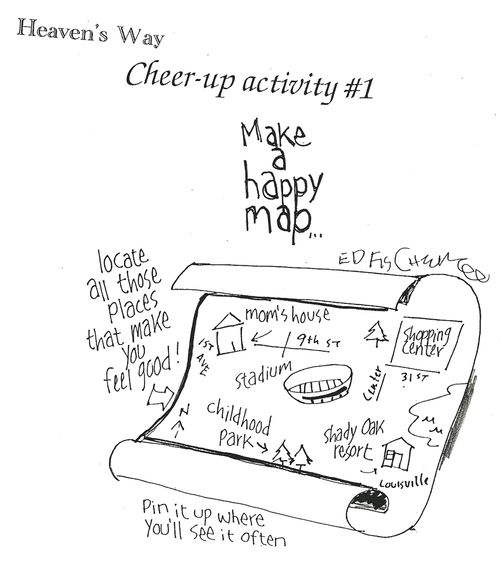 Heaven's Way
Cheer-up activity #1
Make
a
happy
map...
locate
all those
places
that make
you
feel good!
ED FISCHER
mom's house
1ST
AVE
9th ST
shopping
center
stadium
Center
31 ST
N
childhood
park
shady Oak
resort
Louisville
Pin it up where
you'll see it often